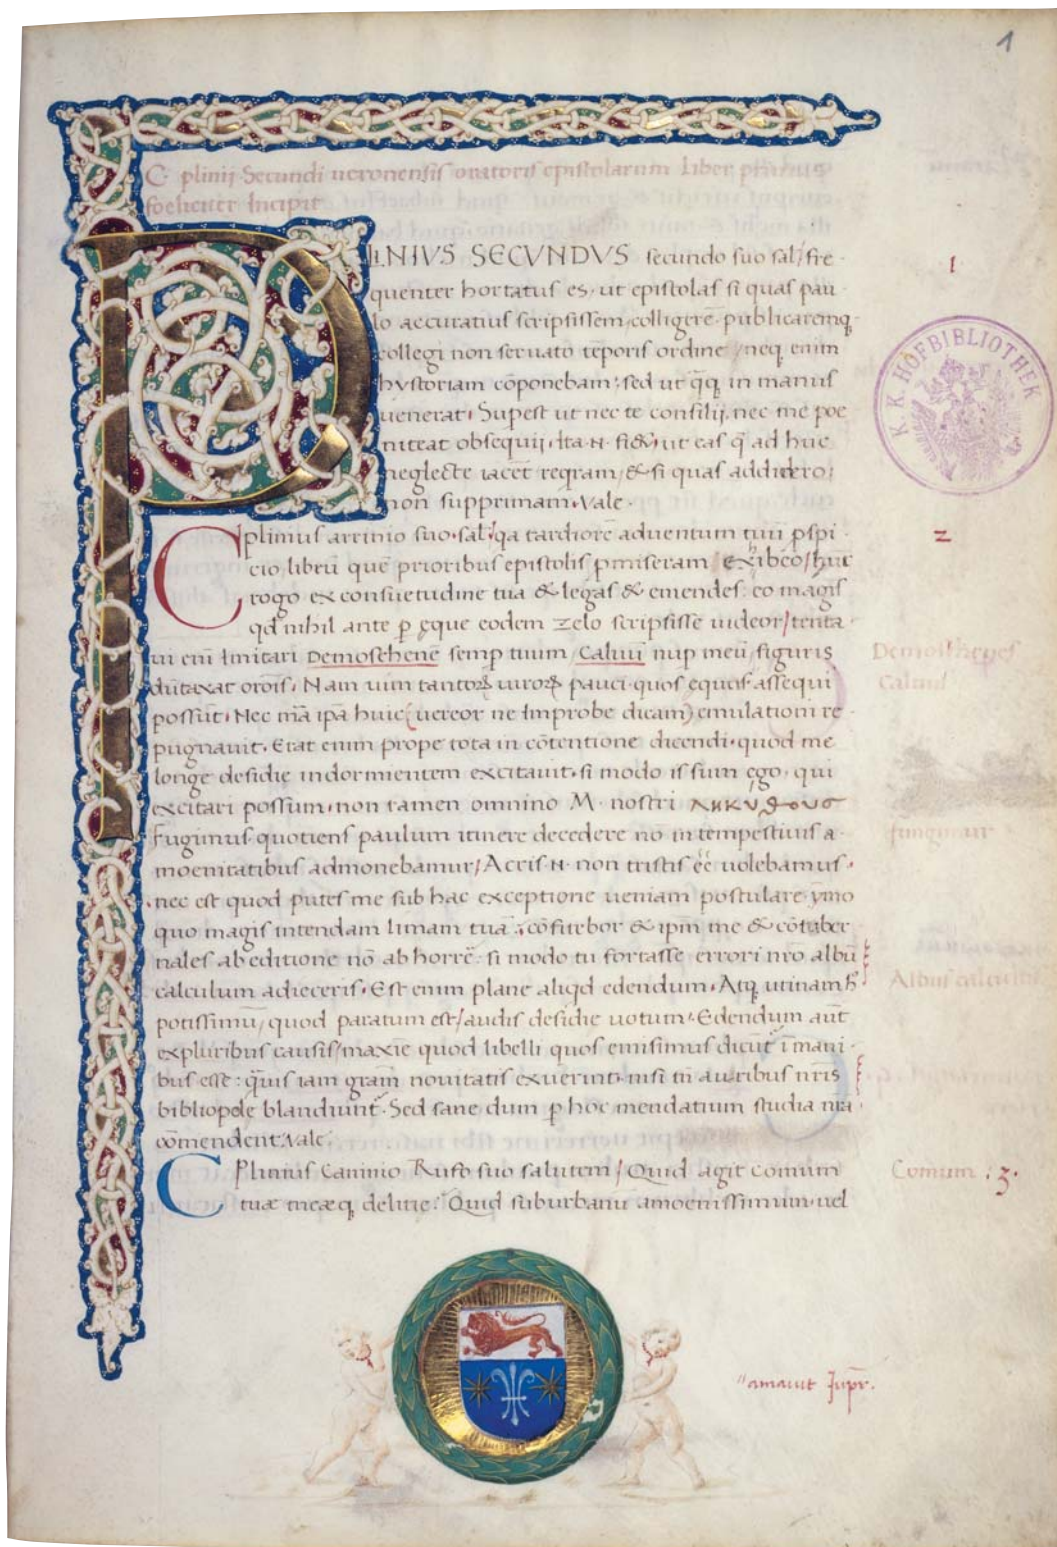 1
C plinij Secundi ueronensis oratoris epistolarum Liber primus
foeliciter Incipit
PLINIVS SECVNDVS secundo suo sal/ fre
quenter hortatus es, ut epistolas si quas pau
lo accuratius scripsissem, colligere publicaremq
collegi non seruato tēporis ordine, neq enim
hystoriam cōponebam: sed ut q̄q in manus
uenerat. Supest ut nec te consilij, nec me poe
niteat obsequij. Ita N. ut eas q̄ ad huc
neglecte iacēt reqram, & si quas addidero,
non supprimam. Vale.
1
C plinius arrinio suo sal/ qa tardiorē aduentum tuū pspi
cio, librū quē prioribus epistolis pmiseram exibeo/ hūc
rogo ex consuetudine tua & legas & emendes: eo magis
qd nihil ante p ęque eodem zelo scripsisse uideor/ tenta
ui eni Imitari Demosthenē semp tuum, Caluū nup meū, figuris
dūtaxat orōis. Nam uim tantoꝝ uiroꝝ pauci quos equus assequi
possūt. Nec mā ipā huic (uereor ne Improbe dicam) emulationi re
pugnauit. Erat enim prope tota in cōtentione dicendi. quod me
longe desidie indormientem excitauit. si modo is sum ego, qui
excitari possum. non tamen omnino M. nostri
fugimus quotiens paulum itinere decedere nō intempestiuis a
moenitatibus admonebamur/ Acris N. non tristis eē uolebamus.
nec est quod putes me sub hac exceptione ueniam postulare ymo
quo magis intendam limam tuā: cōfitebor & ipm me & cōtuber
nales ab editione nō abhorrē: si modo tu fortasse errori nr̄o albū
calculum adieceris. Est enim plane aliqd edendum. Atq utinam h̄
potissimū, quod paratum est/ audis desidie uotum. Edendum aūt
expluribus causis/ maxīe quod libelli quos emisimus dicūt ī mani
bus esse: q̄uis iam grām nouitatis exuerint. nisi tn̄ auribus nr̄is
bibliopole blandiunt. Sed sane dum p hoc mendatium studia nr̄a
cōmendent. Vale.
2
Demosthenes
Caluus
Albus calculus
C Plinius Caninio Rufo suo salutem/ Quid agit comum
tuæ meæq delitie? Quid suburbanū amoenissimum. uel
Comum. 3.
amauit Jupr.
K. K. HOFBIBLIOTHEK